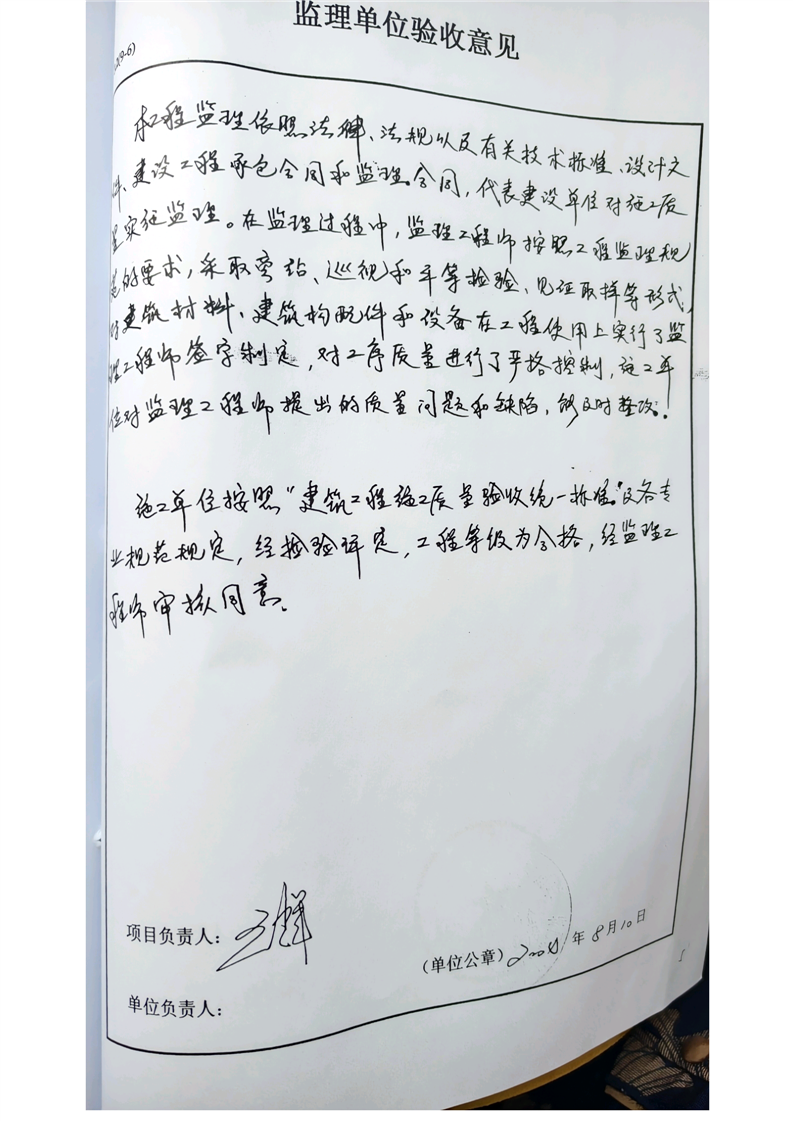 监理单位验收意见
2(9-6)
本工程监理依照法律、法规以及有关技术标准、设计文
件、建设工程承包合同和监理合同,代表建设单位对施工质
量实施监理。在监理过程中,监理工程师按照工程监理规
范的要求,采取旁站、巡视和平等检验、见证取样等形式,
对建筑材料、建筑构配件和设备在工程使用上实行了监
理工程师签字制定,对工序质量进行了严格控制,施工单
位对监理工程师提出的质量问题和缺陷,能及时整改。
施工单位按照“建筑工程施工质量验收统一标准”及各专
业规范规定,经检验评定,工程等级为合格,经监理工
程师审核同意。
项目负责人:
(单位公章) 年8月10日
单位负责人: